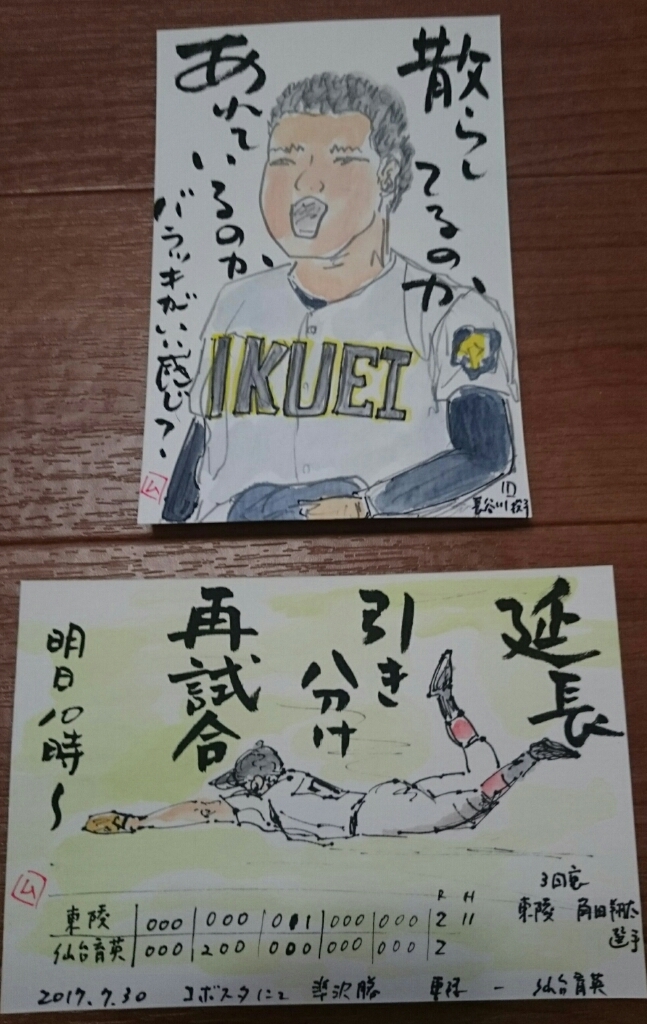 散らし
てるのか
あれて
いるのか
バラツキがいい感じ?
IKUEI
10
長谷川投手
延長
引き
分け
再試合
明日10時〜
3回裏
東陵 角田翔太
選手
R H
東陵 000 000 011 000 000 2 11
仙台育英 000 200 000 000 000 2
2017.7.30 コボスタにて 準決勝 東陵 - 仙台育英